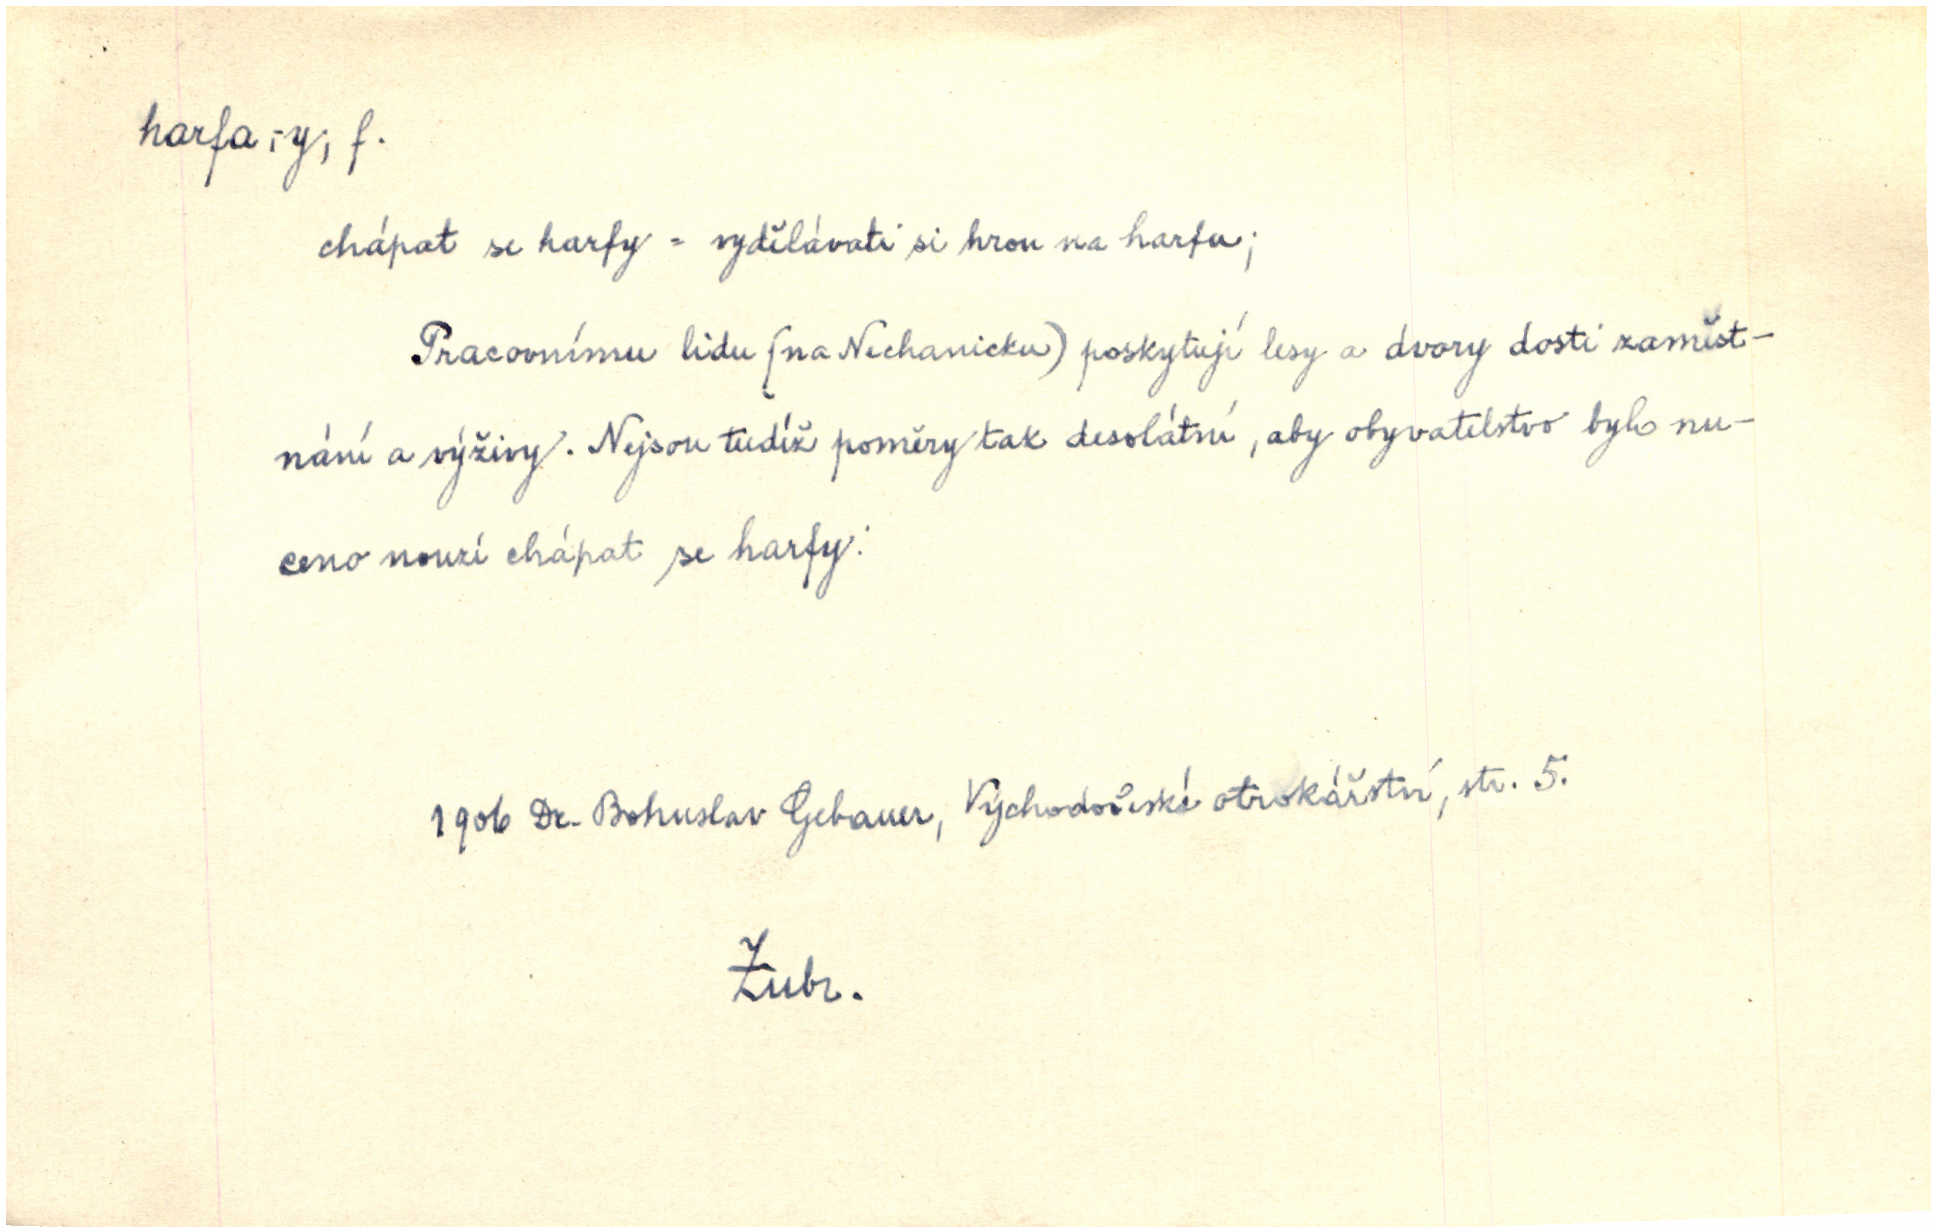 harfa, -y, f.
chápat se harfy = vydělávati si hrou na harfu;
Pracovnímu lidu (na Nechanicku) poskytují lesy a dvory dosti zaměst-
nání a výživy. Nejsou tudíž poměry tak desolátní, aby obyvatelstvo bylo nu-
ceno nouzí chápat se harfy.
1906 Dr. Bohuslav Gebauer, Východočeské otrokářství, str. 5.
Zubr.